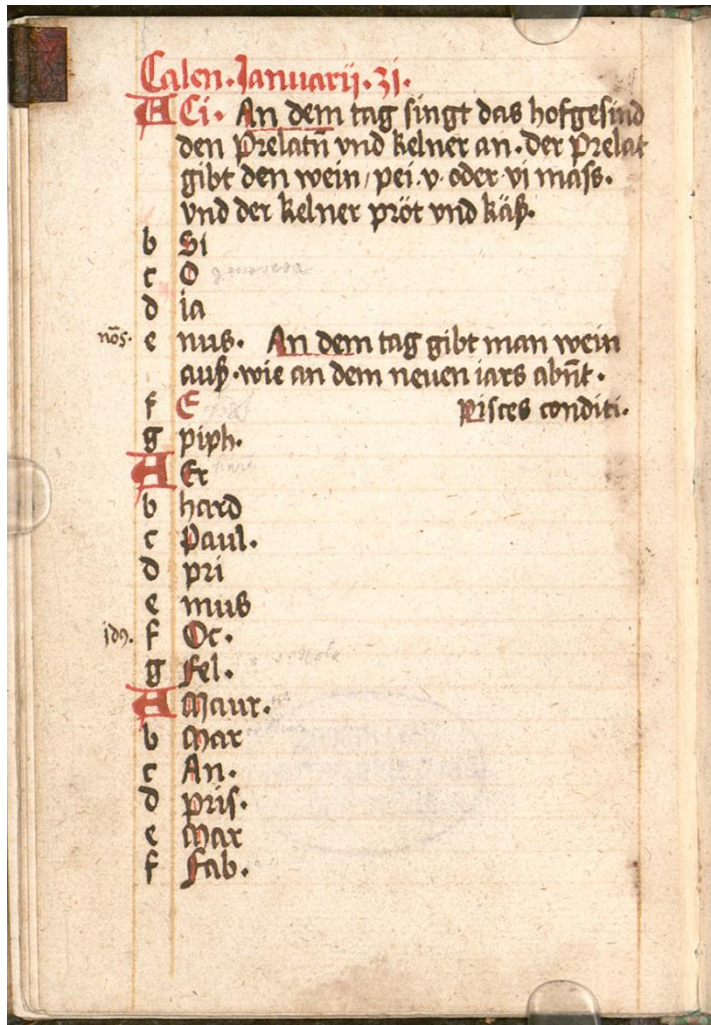 Calen. Ianuarij. 31.
A Ci. An dem tag singt das hofgesind
den Prelatn̄ vnd kelner an. der Prelat
gibt den wein / pei .v. oder vi mass.
vnd der kelner pröt vnd käß.
b Si
c O
d ia
nōs. e nus. An dem tag gibt man wein
auß. wie an dem neuen iars abn̄t.
f E Pisces conditi.
g piph.
A Er
b hard
c Paul.
d pri
e mus
idꝯ. f Oc.
g Fel.
A Maur.
b Mar
c An.
d pris.
e Mar
f Fab.